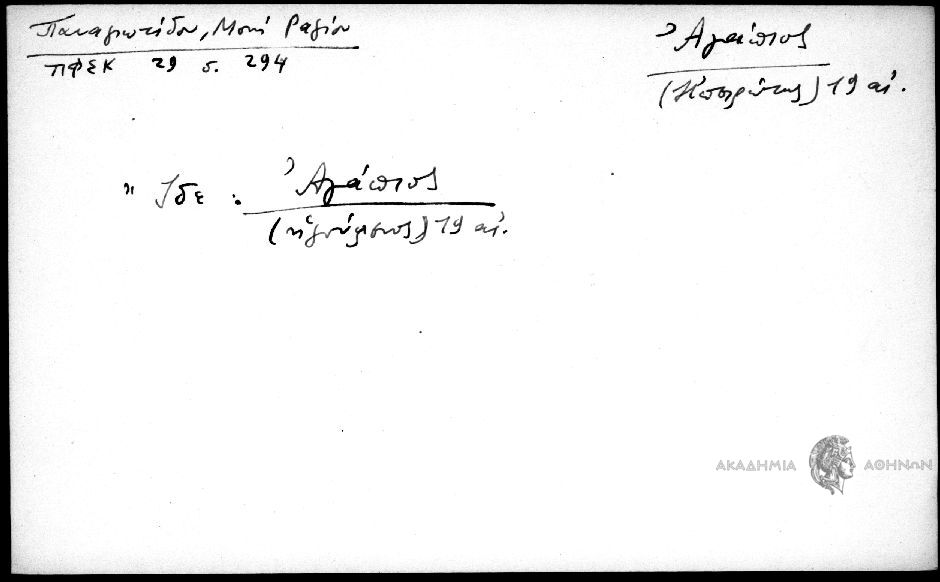 Παναγιωτίδου, Μονή Ραγίου
ΠΦΣΚ 29 σ. 294
Ἀγάπιος
(Ἠπειρώτης) 19 αἰ.
Ἴδε : Ἀγάπιος
(ἡγούμενος) 19 αἰ.
ΑΚΑΔΗΜΙΑ ΑΘΗΝΩΝ